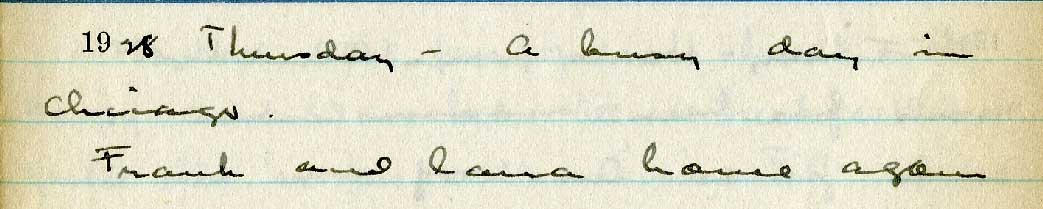 1928 Thursday - A busy day in
Chicago.
Frank and home again